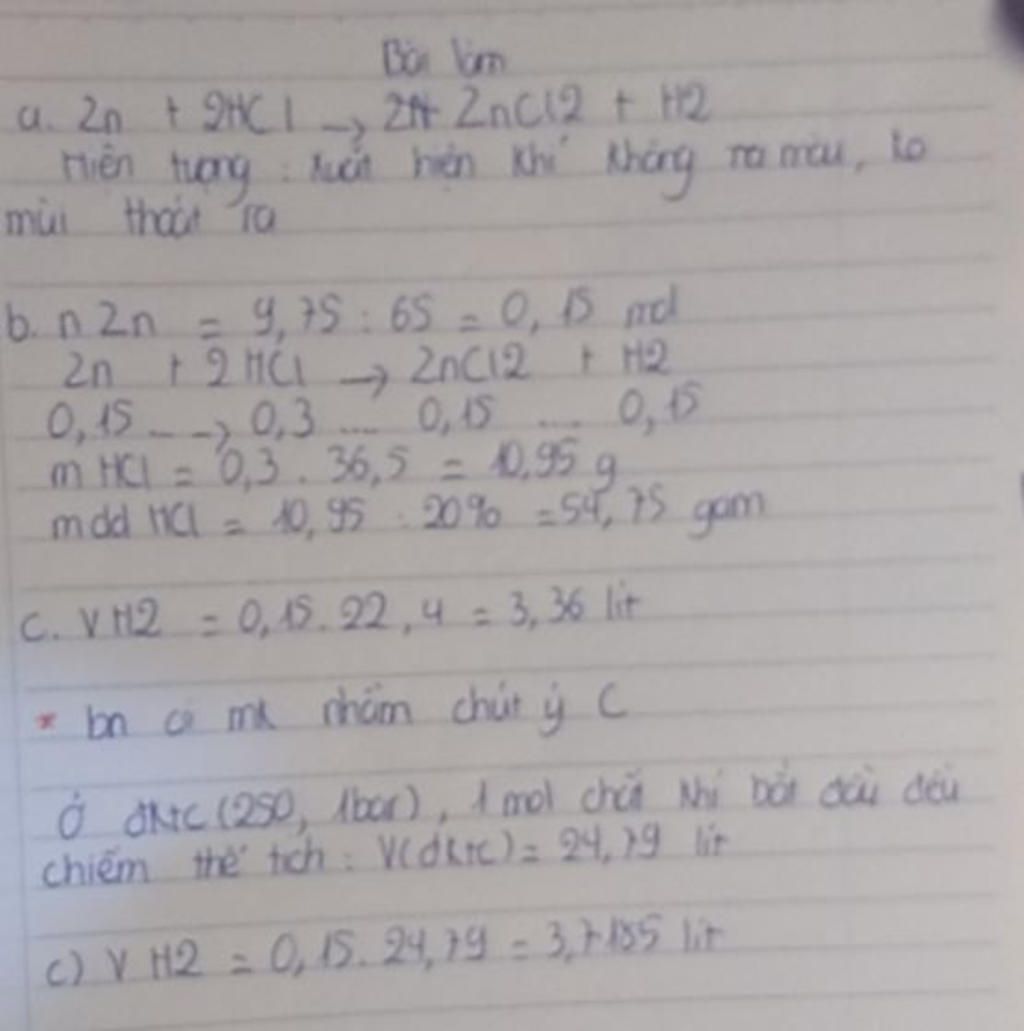 Bài làm
a. Zn + 2HCl → ZnCl2 + H2
Hiện tượng : xuất hiện khí không màu, ko
mùi thoát ra
b. n Zn = 9,75 : 65 = 0,15 mol
Zn + 2HCl → ZnCl2 + H2
0,15 ---> 0,3 .... 0,15 .... 0,15
m HCl = 0,3 . 36,5 = 10,95 g
mdd HCl = 10,95 : 20% = 54,75 gam
C. V H2 = 0,15 . 22,4 = 3,36 lít
* bn ơi mk nhầm chút ý C
Ở đktc (250, 1bar), 1 mol chất khí bất đầu đều
chiếm thể tích : V(đktc) = 24,79 lít
c) V H2 = 0,15 . 24,79 = 3,7185 lít